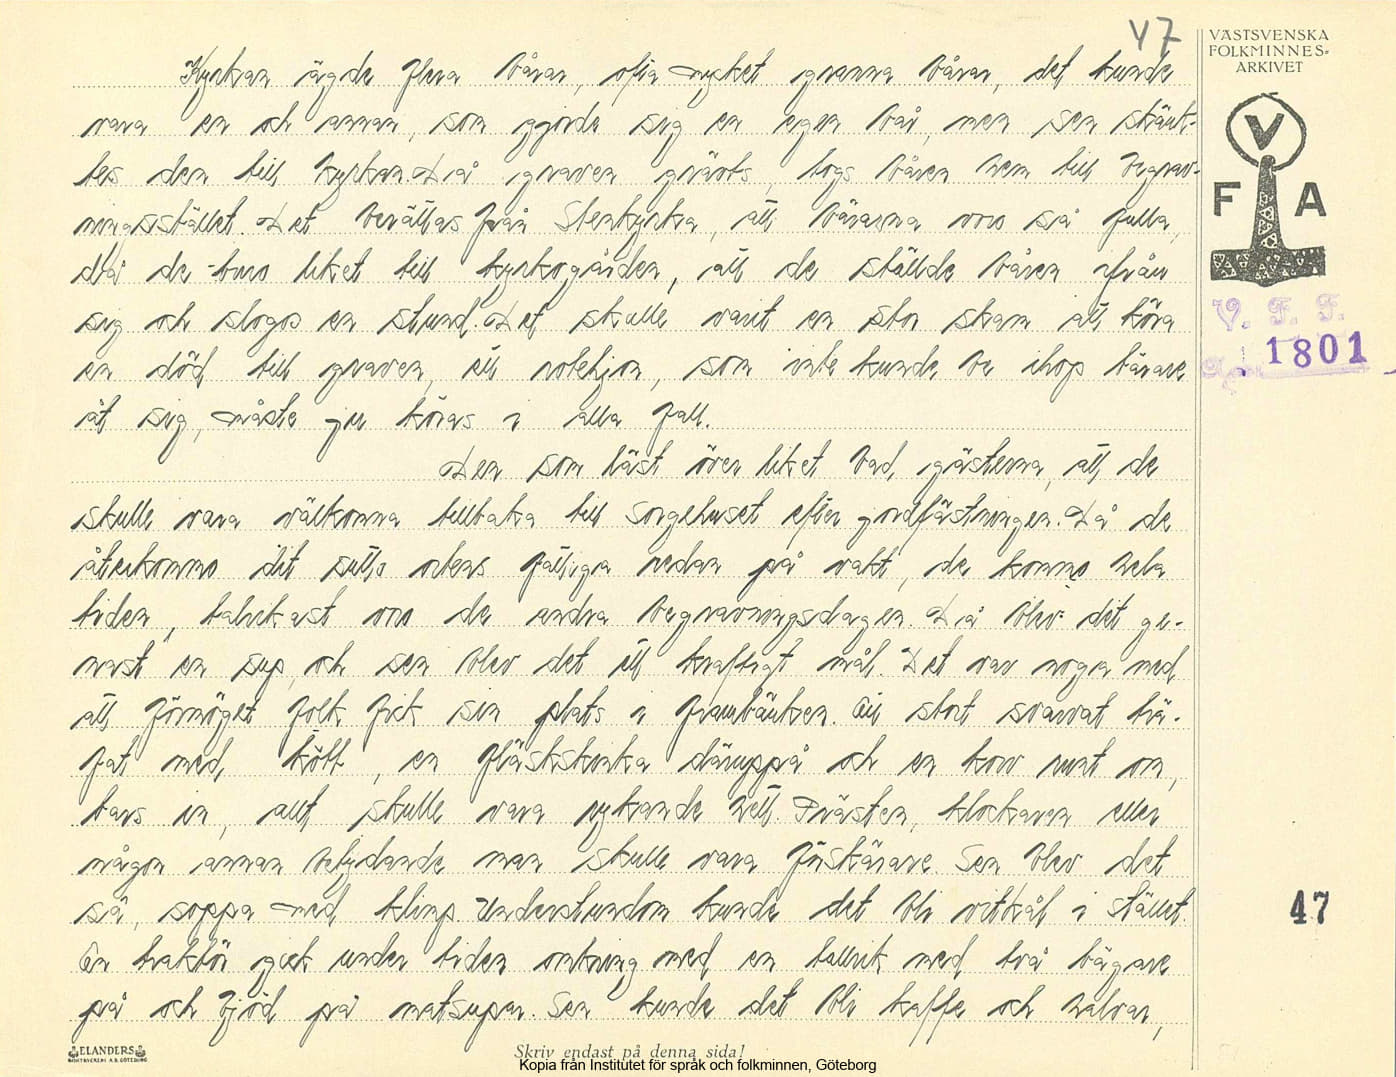 47
VÄSTSVENSKA
FOLKMINNES-
ARKIVET
V
F A
V. F. F.
1801
Kyrkan ägde flera bårar, ofta mycket granna bårar, det kunde
vara en och annan, som gjorde sig en egen bår, men sen skänk-
tes den till kyrkan. Då graven grävts, togs båren hem till begrav-
ningsstället. Det berättas från Stenkyrka, att bärarna voro så fulla,
då de buro liket till kyrkogården, att de ställde båren ifrån
sig och slogos en stund. Det skulle varit en stor skam att köra
en död till graven, ett rotehjon, som inte kunde be ihop bärare
åt sig, måste ju köras i alla fall.
Den som läst över liket bad gästerna, att de
skulle vara välkomna tillbaka till sorgehuset efter jordfästningen. Då de
återkommo dit sutto ortens fattiga redan på vakt, de kommo hela
tiden, talrikast voro de andra begravningsdagen. Då blev det ge-
nast en sup, och sen blev det ett kraftigt mål. Det var noga med
att förmöget folk fick sin plats i frambänken. Ett stort svarvat trä-
fat med kött, en fläskskinka däruppå och en korv runt om,
bars in, allt skulle vara rykande hett. Prästen, klockaren eller
någon annan betydande man skulle vara förskärare. Sen blev det
så, soppa med klimp. Understundom kunde det bli vitkål i stället.
En traktör gick under tiden omkring med en tallrik med två bägare
på och bjöd på matsupar. Sen kunde det bli kaffe och halvar,
47
ELANDERS
Skriv endast på denna sida!
Kopia från Institutet för språk och folkminnen, Göteborg